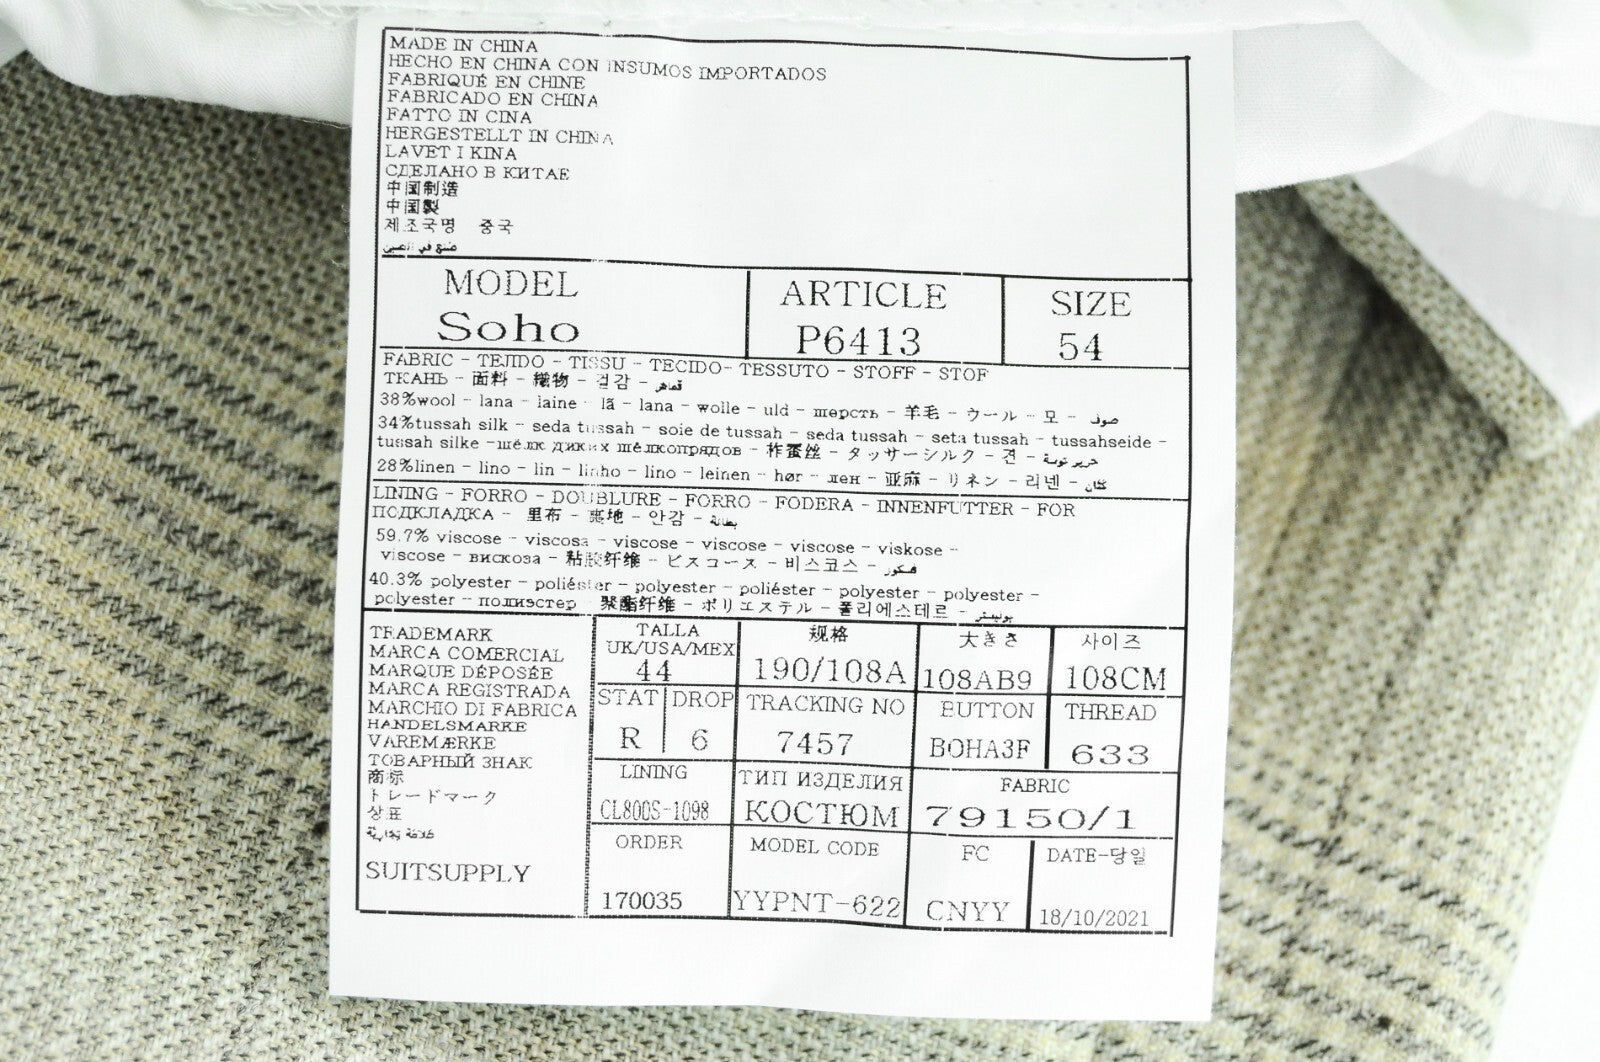 MADE IN CHINA
HECHO EN CHINA CON INSUMOS IMPORTADOS
FABRIQUÉ EN CHINE
FABRICADO EN CHINA
FATTO IN CINA
HERGESTELLT IN CHINA
LAVET I KINA
СДЕЛАНО В КИТАЕ
中国制造
中国製
제조국명 중국
صنع في الصين
MODEL ARTICLE SIZE
Soho P6413 54
FABRIC - TEJIDO - TISSU - TECIDO- TESSUTO - STOFF - STOF
ТКАНЬ - 面料 - 織物 - 겉감 - قماش
38%wool - lana - laine - lã - lana - wolle - uld - шерсть - 羊毛 - ウール - 모 - صوف
34%tussah silk - seda tussah - soie de tussah - seda tussah - seta tussah - tussahseide -
tussah silke -шёлк диких шёлкопрядов - 柞蚕丝 - タッサーシルク - 견 - حرير توسة
28%linen - lino - lin - linho - lino - leinen - hør - лен - 亚麻 - リネン - 리넨 - كتان
LINING - FORRO - DOUBLURE - FORRO - FODERA - INNENFUTTER - FOR
ПОДКЛАДКА - 里布 - 裏地 - 안감 - بطانة
59.7% viscose - viscosa - viscose - viscose - viscose - viskose -
viscose - вискоза - 粘胶纤维 - ビスコース - 비스코스 - فسكوز
40.3% polyester - poliéster - polyester - poliéster - polyester - polyester -
polyester - полиэстер 聚酯纤维 - ポリエステル - 폴리에스테르 - بوليستر
TRADEMARK
MARCA COMERCIAL
MARQUE DÉPOSÉE
MARCA REGISTRADA
MARCHIO DI FABRICA
HANDELSMARKE
VAREMÆRKE
ТОВАРНЫЙ ЗНАК
商标
トレードマーク
상표
علامة تجارية
SUITSUPPLY
TALLA 规格 大きさ 사이즈
UK/USA/MEX
44 190/108A 108AB9 108CM
STAT DROP TRACKING NO BUTTON THREAD
R 6 7457 BOHA3F 633
LINING ТИП ИЗДЕЛИЯ FABRIC
CL800S-1098 КОСТЮМ 79150/1
ORDER MODEL CODE FC DATE-당일
170035 YYPNT-622 CNYY 18/10/2021